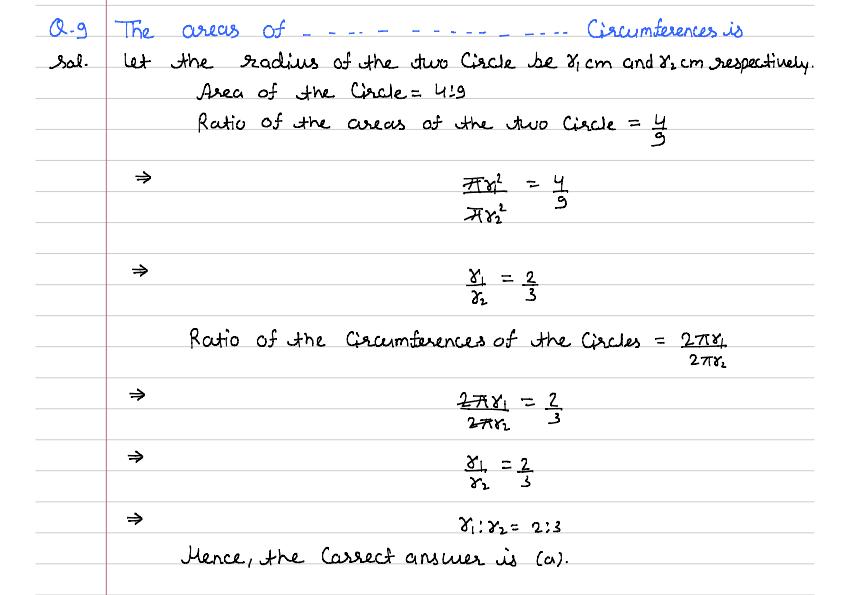 Q.9 The areas of - - - - - - - - - - - - - - - Circumferences is
Sol. Let the radius of the two Circle be r₁ cm and r₂ cm respectively.
Area of the Circle = 4:9
Ratio of the areas of the two Circle = 4/9
⇒ πr₁²/πr₂² = 4/9
⇒ r₁/r₂ = 2/3
Ratio of the Circumferences of the Circles = 2πr₁/2πr₂
⇒ 2πr₁/2πr₂ = 2/3
⇒ r₁/r₂ = 2/3
⇒ r₁:r₂ = 2:3
Hence, the Correct answer is (a).